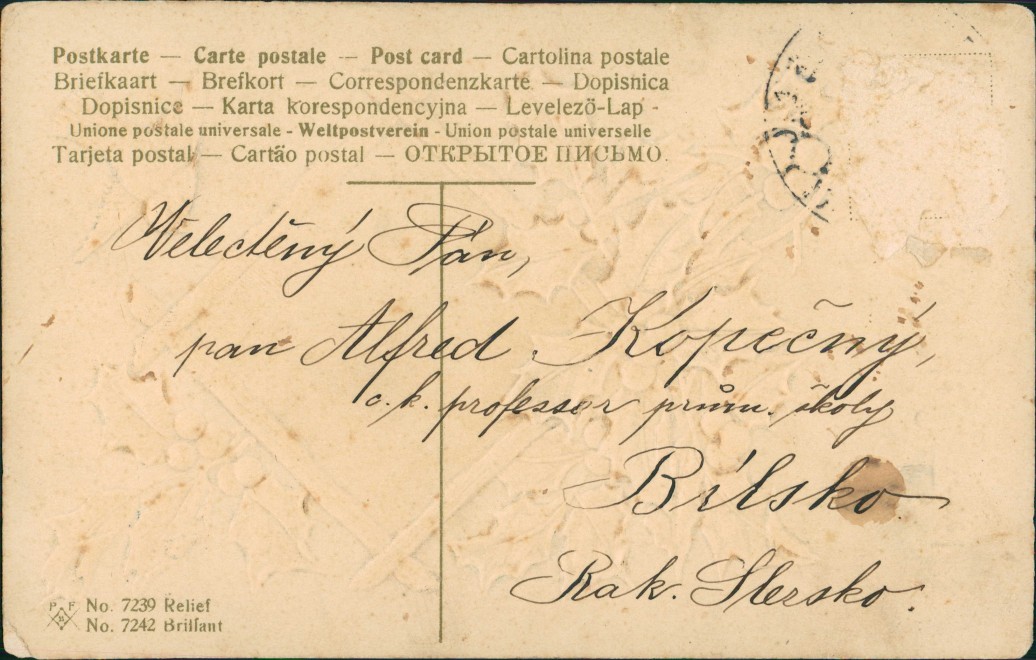 Postkarte — Carte postale — Post card — Cartolina postale
Briefkaart — Brefkort — Correspondenzkarte — Dopisnica
Dopisnice — Karta korespondencyjna — Levelezö-Lap -
Unione postale universale - Weltpostverein - Union postale universelle
Tarjeta postal — Cartão postal — ОТКРЫТОЕ ПИСЬМО.
Velectěný Pán,
pan Alfred Kopečný,
c. k. professor prům. školy
Bílsko
Rak. Slezsko.
P F
No. 7239 Relief
No. 7242 Brillant